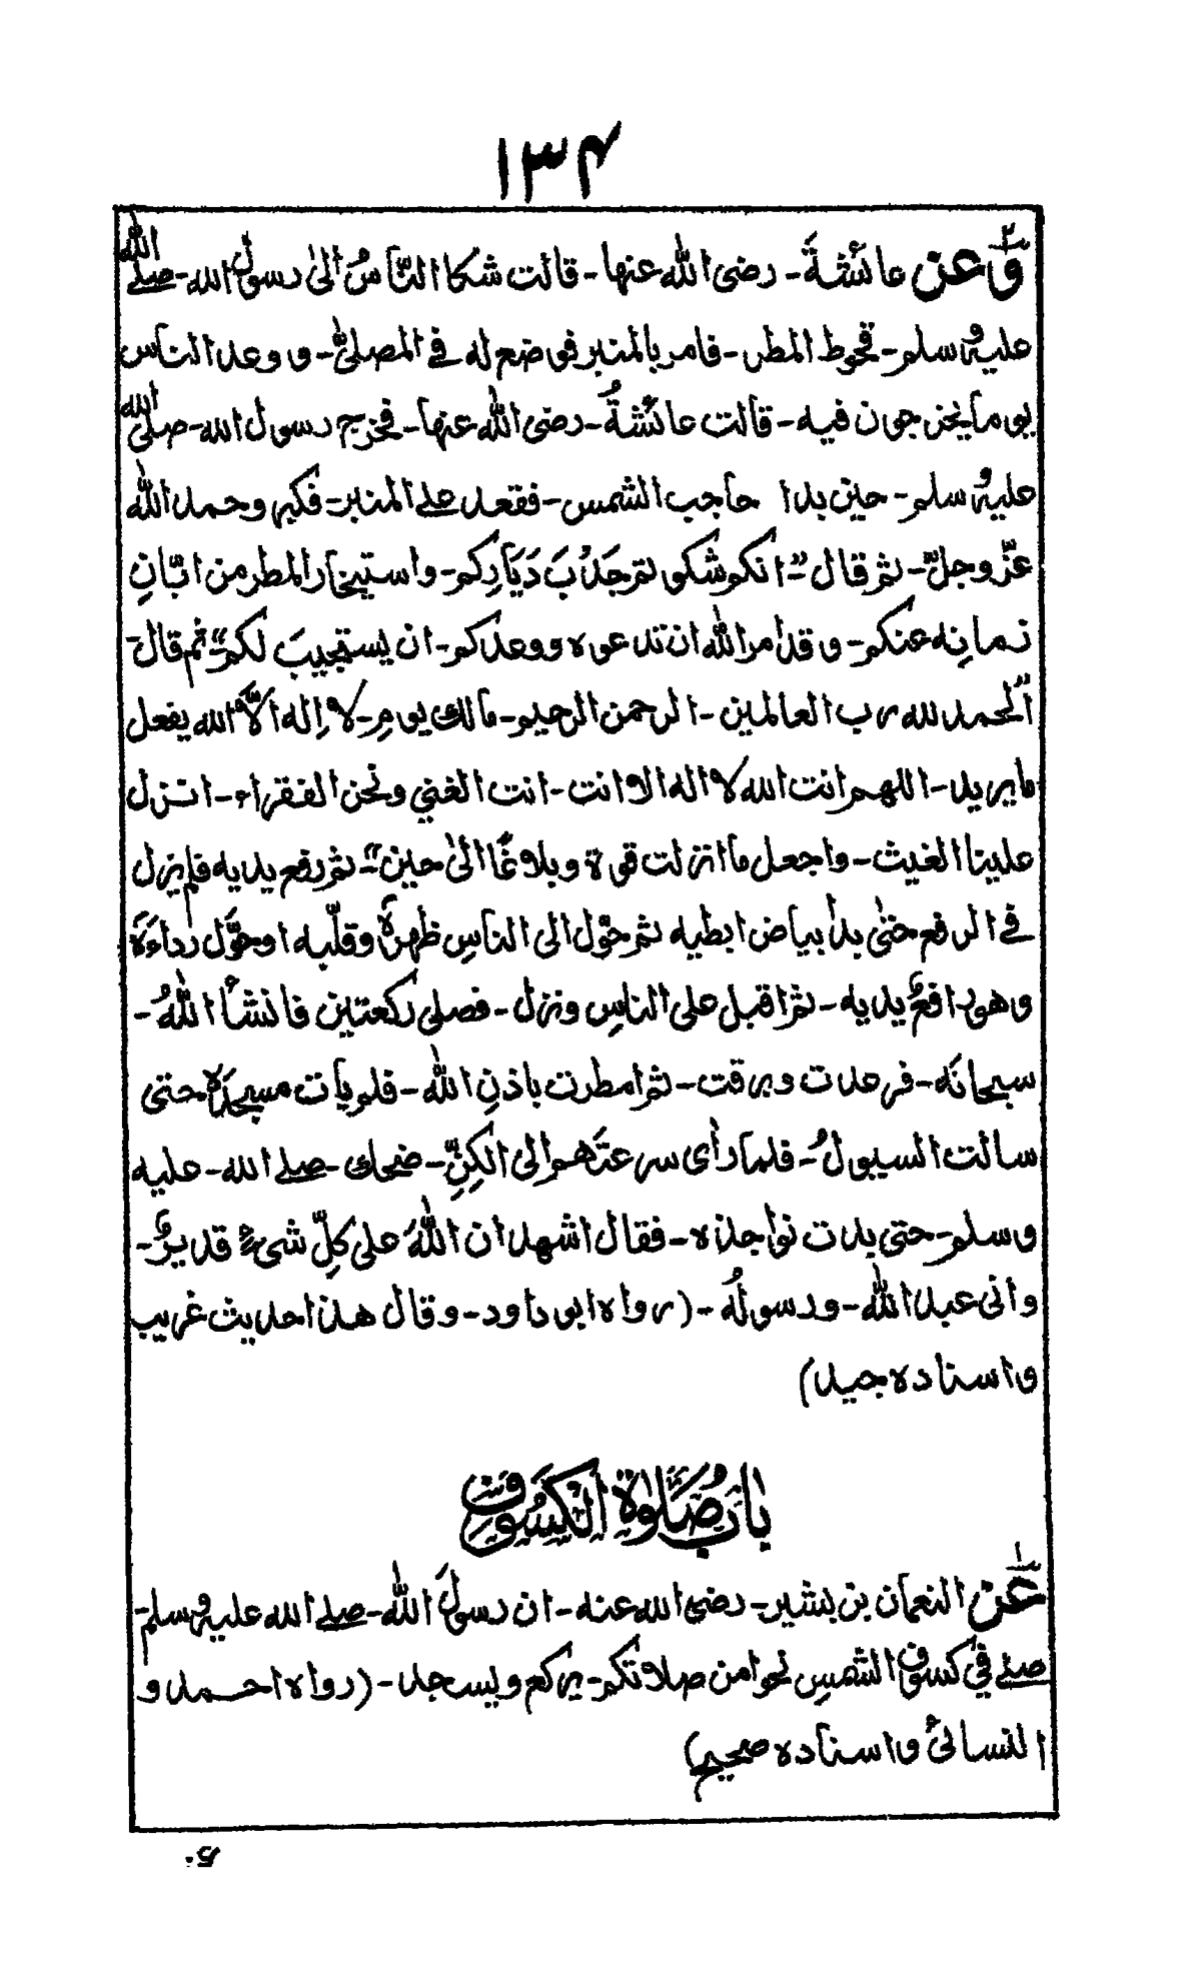 ۱۳۴
۲
وَعن عائشةَ - رضی الله عنها - قالت شکا النّاسُ الیٰ رسولِ الله - صلے الله
علیہ وسلم - قحوط المطر - فامر بالمنبر فوضع له فے المصلیّٰ - ووعد الناس
یوما یخرجون فیه - قالت عائشةُ - رضی الله عنها - فخرج رسول الله - صلی الله
علیہ وسلم - حین بدا حاجب الشمس - فقعد علے المنبر - فکبر وحمد الله
عزّ وجلّ - ثم قال "انکم شکوتم جَدْبَ دَیَارِکم - واستیخار المطر من ابّانِ
زمانِه عنکم - وقد امر الله ان تدعوه ووعدکم - ان یستجیبَ لکم" ثم قال
"الحمد لله رب العالمین - الرحمن الرحیم - مالك یومِ - لا اِله الاَّ الله یفعل
ما یرید - اللهم انت الله لا اله الا انت - انت الغني ونحن الفقراء - انزل
علینا الغیث - واجعل ما انزلت قوة وبلاغًا الیٰ حین" - ثم رفع یدیه فلم یزل
فے الرفع حتیٰ بدأ بیاض ابطیه ثم حوّل الی الناسِ ظهرهٗ وقلّبه اوحوَّل رداءَهٗ
وهو رافعٌ یدیه - ثم اقبل علی الناسِ ونزل - فصلی رکعتین فانشأ اللهُ -
سبحانَه - فرعدت وبرقت - ثم امطرت باذنِ الله - فلم یأت مسجدَهٗ حتی
سالت السیولُ - فلما رأی سرعتَهم الی الکِنِّ - ضحك - صلے الله - علیه
وسلم - حتی بدت نواجذه - فقال اشهد ان اللهَ علی کلِّ شیءٍ قدیرٌ -
وانی عبد الله - ورسولُه - (رواه ابو داود - وقال هذا حدیث غریب
واسناده جید)
بابُ صَلٰوةِ الْکُسُوفِ
۱
عَن النعمان بن بشیر - رضی الله عنه - ان رسولَ الله - صلے الله علیہ وسلم -
صلے فی کسوفِ الشمسِ نحوا من صلاتکم - یرکع ویسجد - (رواه احمد و
النسائیُ واسناده صحیح)